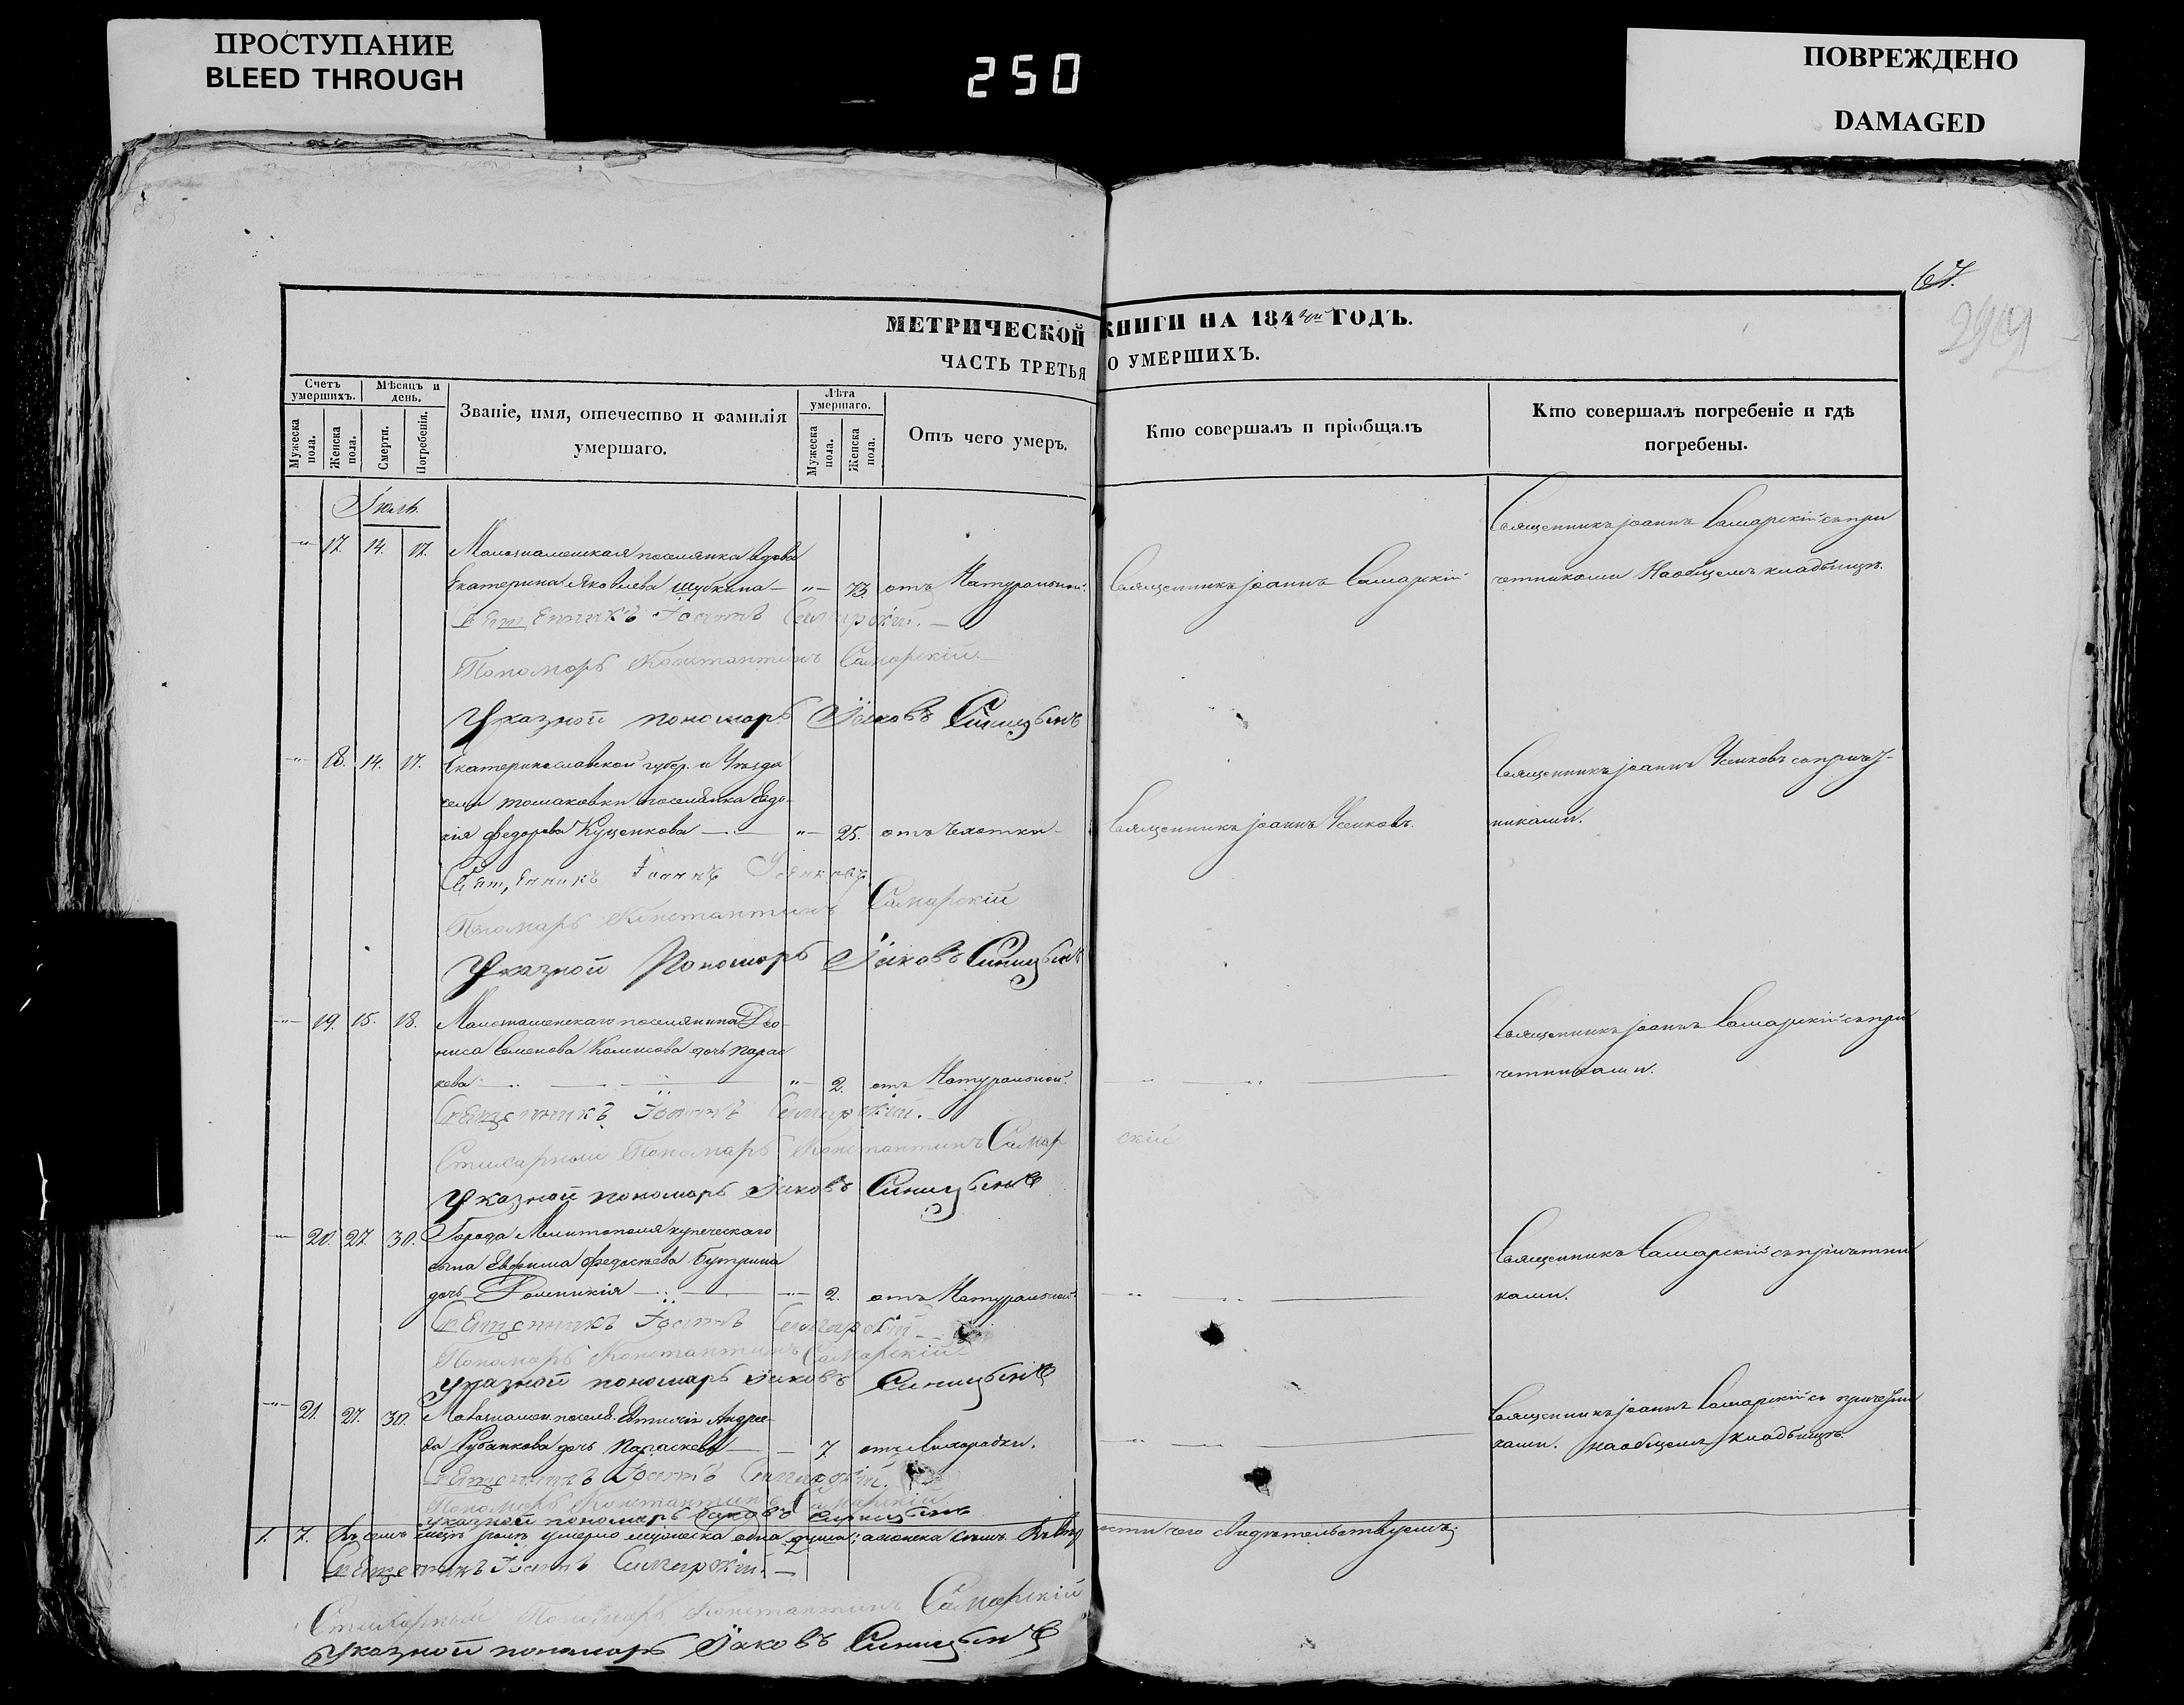 ПРОСТУПАНИЕ
BLEED THROUGH
250
ПОВРЕЖДЕНО
DAMAGED
67.
МЕТРИЧЕСКОЙ КНИГИ НА 184 ГОДЪ.
ЧАСТЬ ТРЕТЬЯ О УМЕРШИХЪ.
Счетъ умершихъ.
Мужеска пола.
Женска пола.
Мѣсяцъ и день.
Смерти.
Погребенія.
Званіе, имя, отечество и фамилія
умершаго.
Лѣта умершаго.
Мужеска пола.
Женска пола.
Отъ чего умеръ.
Кто совершалъ и пріобщалъ
Кто совершалъ погребеніе и гдѣ
погребены.
Іюль
Священникъ Іоаннъ Самарскій съ при
17. 14. 17. поселянка вдова
Екатерина Яковлева 73 отъ Натуральной. Священникъ Іоаннъ Самарскій четниками На общемъ кладбищѣ.
Священникъ Іоаннъ Самарскій.
Пономарь Константинъ Самарскій
Указной пономарь Іаковъ Синицынъ
18. 14. 17. Екатеринославской губер. и Уѣзда
Священникъ Іоаннъ Усиковъ съ причет-
села томаковки поселянка Евдо-
кія Федорова Куценкова 25. отъ Чахотки Священникъ Іоаннъ Усиковъ. никами.
Священникъ Іоаннъ Усиковъ
Пономарь Константинъ Самарскій
Указной Пономарь Іаковъ Синицынъ
19. 15. 18. поселянина Део-
Священникъ Іоаннъ Самарскій съ при
ниса Семенова дочь Парас
кева 2. отъ Натуральной. четниками.
Священникъ Іоаннъ Самарскій.
Стихарный Пономарь Константинъ Самарскій
Указной пономарь Іаковъ Синицынъ
20. 27. 30. Города Мелитополя купеческаго
Священникъ Самарскій съ причетни
сына Евфима дочь
2. отъ Натуральной ками.
Священникъ Іоаннъ Самарскій
Пономарь Константинъ Самарскій
Указной пономарь Іаковъ Синицынъ
21. 27. 30. Андрее-
Священникъ Іоаннъ Самарскій съ причетни
ва дочь Параскева 7 отъ Лихорадки. ками. на общемъ кладбищѣ.
Священникъ Іоаннъ Самарскій.
Пономарь Константинъ Самарскій
Указной пономарь Іаковъ Синицынъ
1. 7. умерло мужеска одна душа; а женска семь. свидѣтельствуемъ;
Священникъ Іоаннъ Самарскій.
Стихарный Пономарь Константинъ Самарскій
Указной пономарь Іаковъ Синицынъ